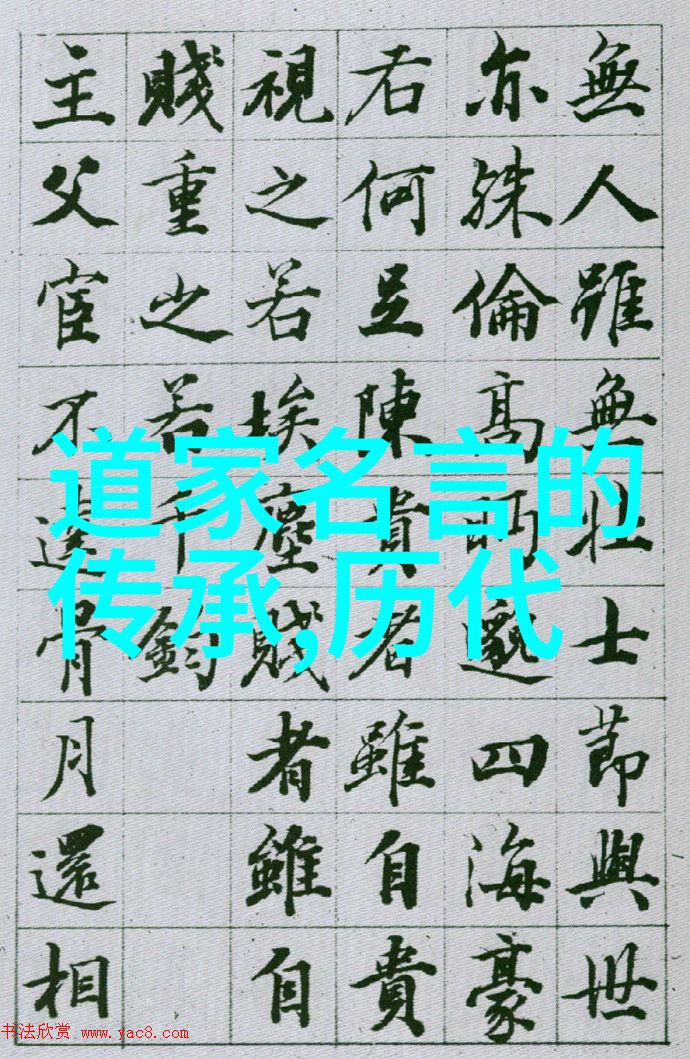 無人雖無壯士節與世
亦殊倫高眄邈四海豪
右何足陳貴者雖自貴
視之若埃塵賤者雖自
賤重之若千鈞
主父宦不達骨月還相
道家名言的
传承,历代
书法欣赏 www.yac8.com